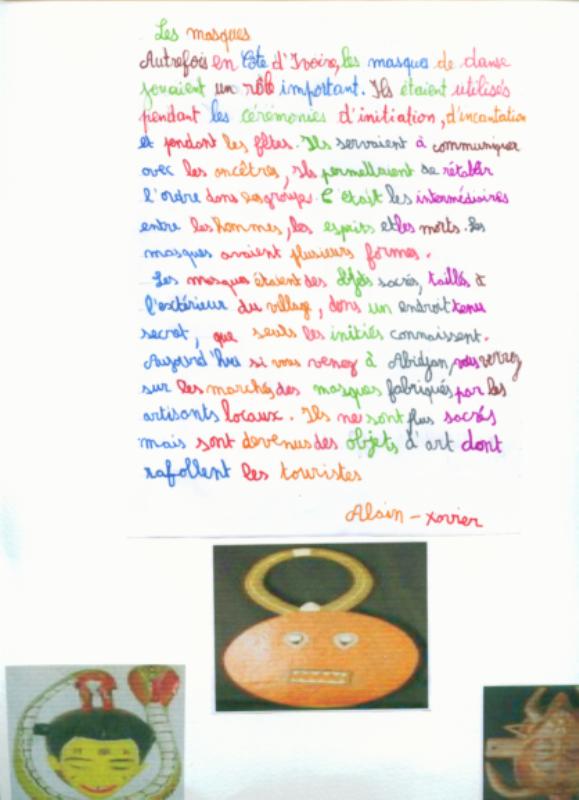 Les masques
Autrefois en Côte d'Ivoire, les masques de danse
jouaient un rôle important. Ils étaient utilisés
pendant les cérémonies d'initiation, d'incantation
et pendant les fêtes. Ils servaient à communiquer
avec les ancêtres, ils permettaient de rétablir
l'ordre dans les groupe. C'était les intermédiaires
entre les hommes, les esprits et les morts. Les
masques avaient plusieurs formes.
Les masques étaient des objets sacrés, taillés à
l'extérieur du village, dans un endroit tenu
secret, que seuls les initiés connaissent.
Aujourd'hui si vous venez à Abidjan, vous verrez
sur les marchés des masques fabriqués par les
artisants locaux. Ils ne sont plus sacrés
mais sont devenus des objets d'art dont
rafollent les touristes
Alain - xavier